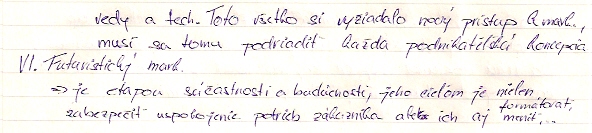 vedy a tech. Toto všetko si vyžiadalo nový prístup k mark.,
musí sa tomu podriadiť každá podnikateľská koncepcia
VI. Futuristický mark.
⇒ je etapou súčastnosti a budúcnosti, jeho cieľom je nielen
zabezpečiť uspokojenie potrieb zákazníka ale ich aj formátovať,
meniť,...